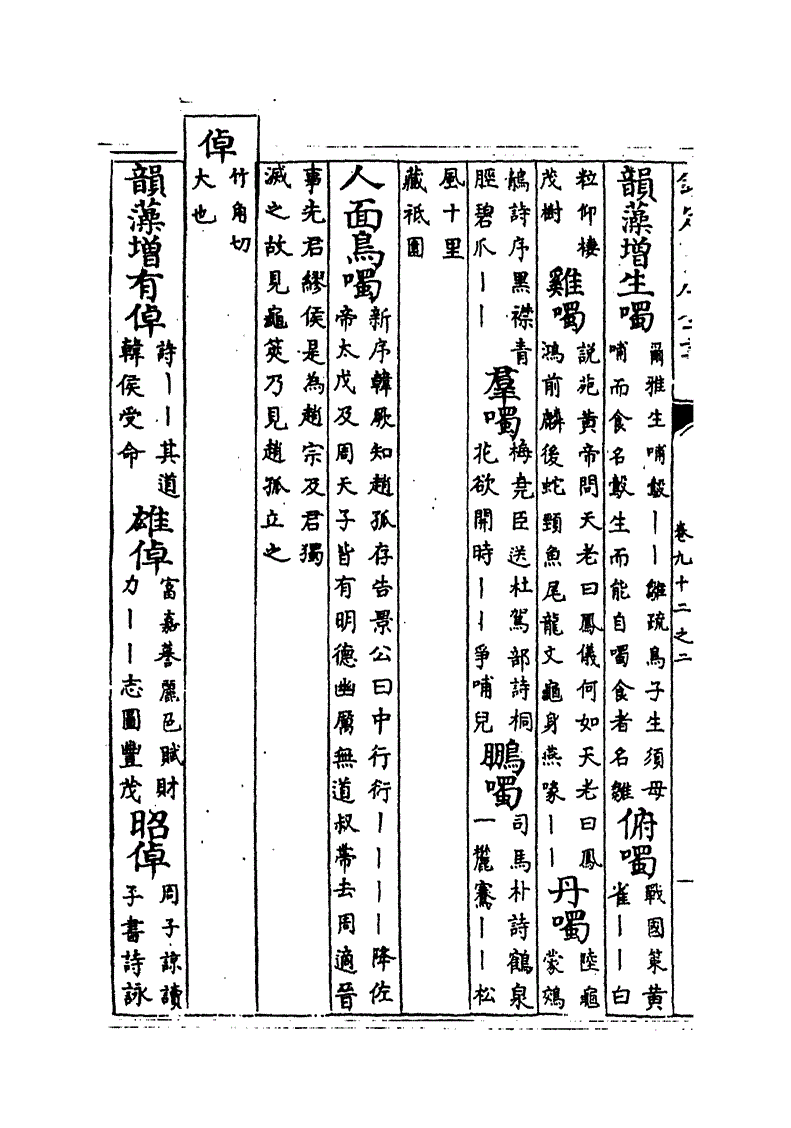 卷九十二之二 一
韻藻增生噣 爾雅生哺鷇丨丨雛疏鳥子生須母
哺而食名鷇生而能自噣食者名雛 俯噣 戰國策黄
雀丨丨白
粒仰棲
茂樹 雞噣 說苑黄帝問天老曰鳳儀何如天老曰鳳
鴻前麟後蛇頸魚尾龍文龜身燕喙丨丨 丹噣 陸龜
蒙鵁
鶄詩序黑襟青
脛碧爪丨丨 羣噣 梅堯臣送杜駕部詩桐
花欲開時丨丨爭哺兒 鵬噣 司馬朴詩鶴泉
一麓騫丨丨松
風十里
藏祗園
人面鳥噣 新序韓厥知趙孤存告景公曰中行衍丨丨丨丨降佐
帝太戊及周天子皆有明德幽厲無道叔帶去周適晉
事先君繆侯是為趙宗及君獨
滅之故見龜筴乃見趙孤立之
倬 竹角切
大也
韻藻增有倬 詩丨丨其道
韓侯受命 雄倬 富嘉謩麗色賦財
力丨丨志圖豐茂 昭倬 周子諒讀
子書詩詠